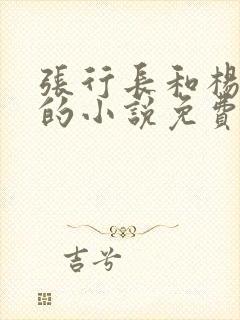 張行長和楊
的小說免費
吉兮